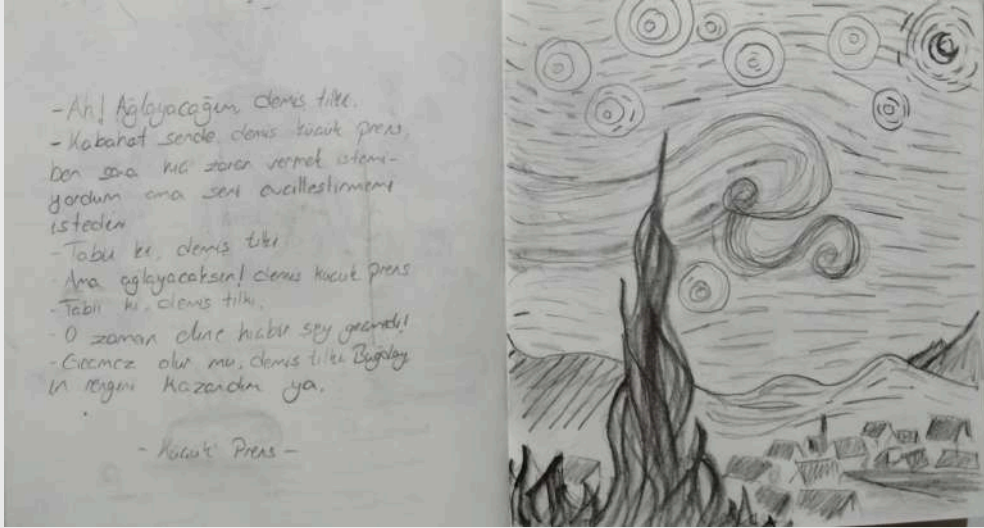 - Ah! Ağlayacağım demiş tilki.
- Kabahat sende, demiş küçük prens,
ben sana hiç zarar vermek istemi-
yordum ama seni evcilleştirmemi
istedin
- Tabii ki, demiş tilki
- Ama ağlayacaksın! demiş küçük prens
- Tabii ki, demiş tilki.
- O zaman eline hiçbir şey geçmedi!
- Geçmez olur mu, demiş tilki Buğday
ın rengini kazandım ya.
- Küçük Prens -